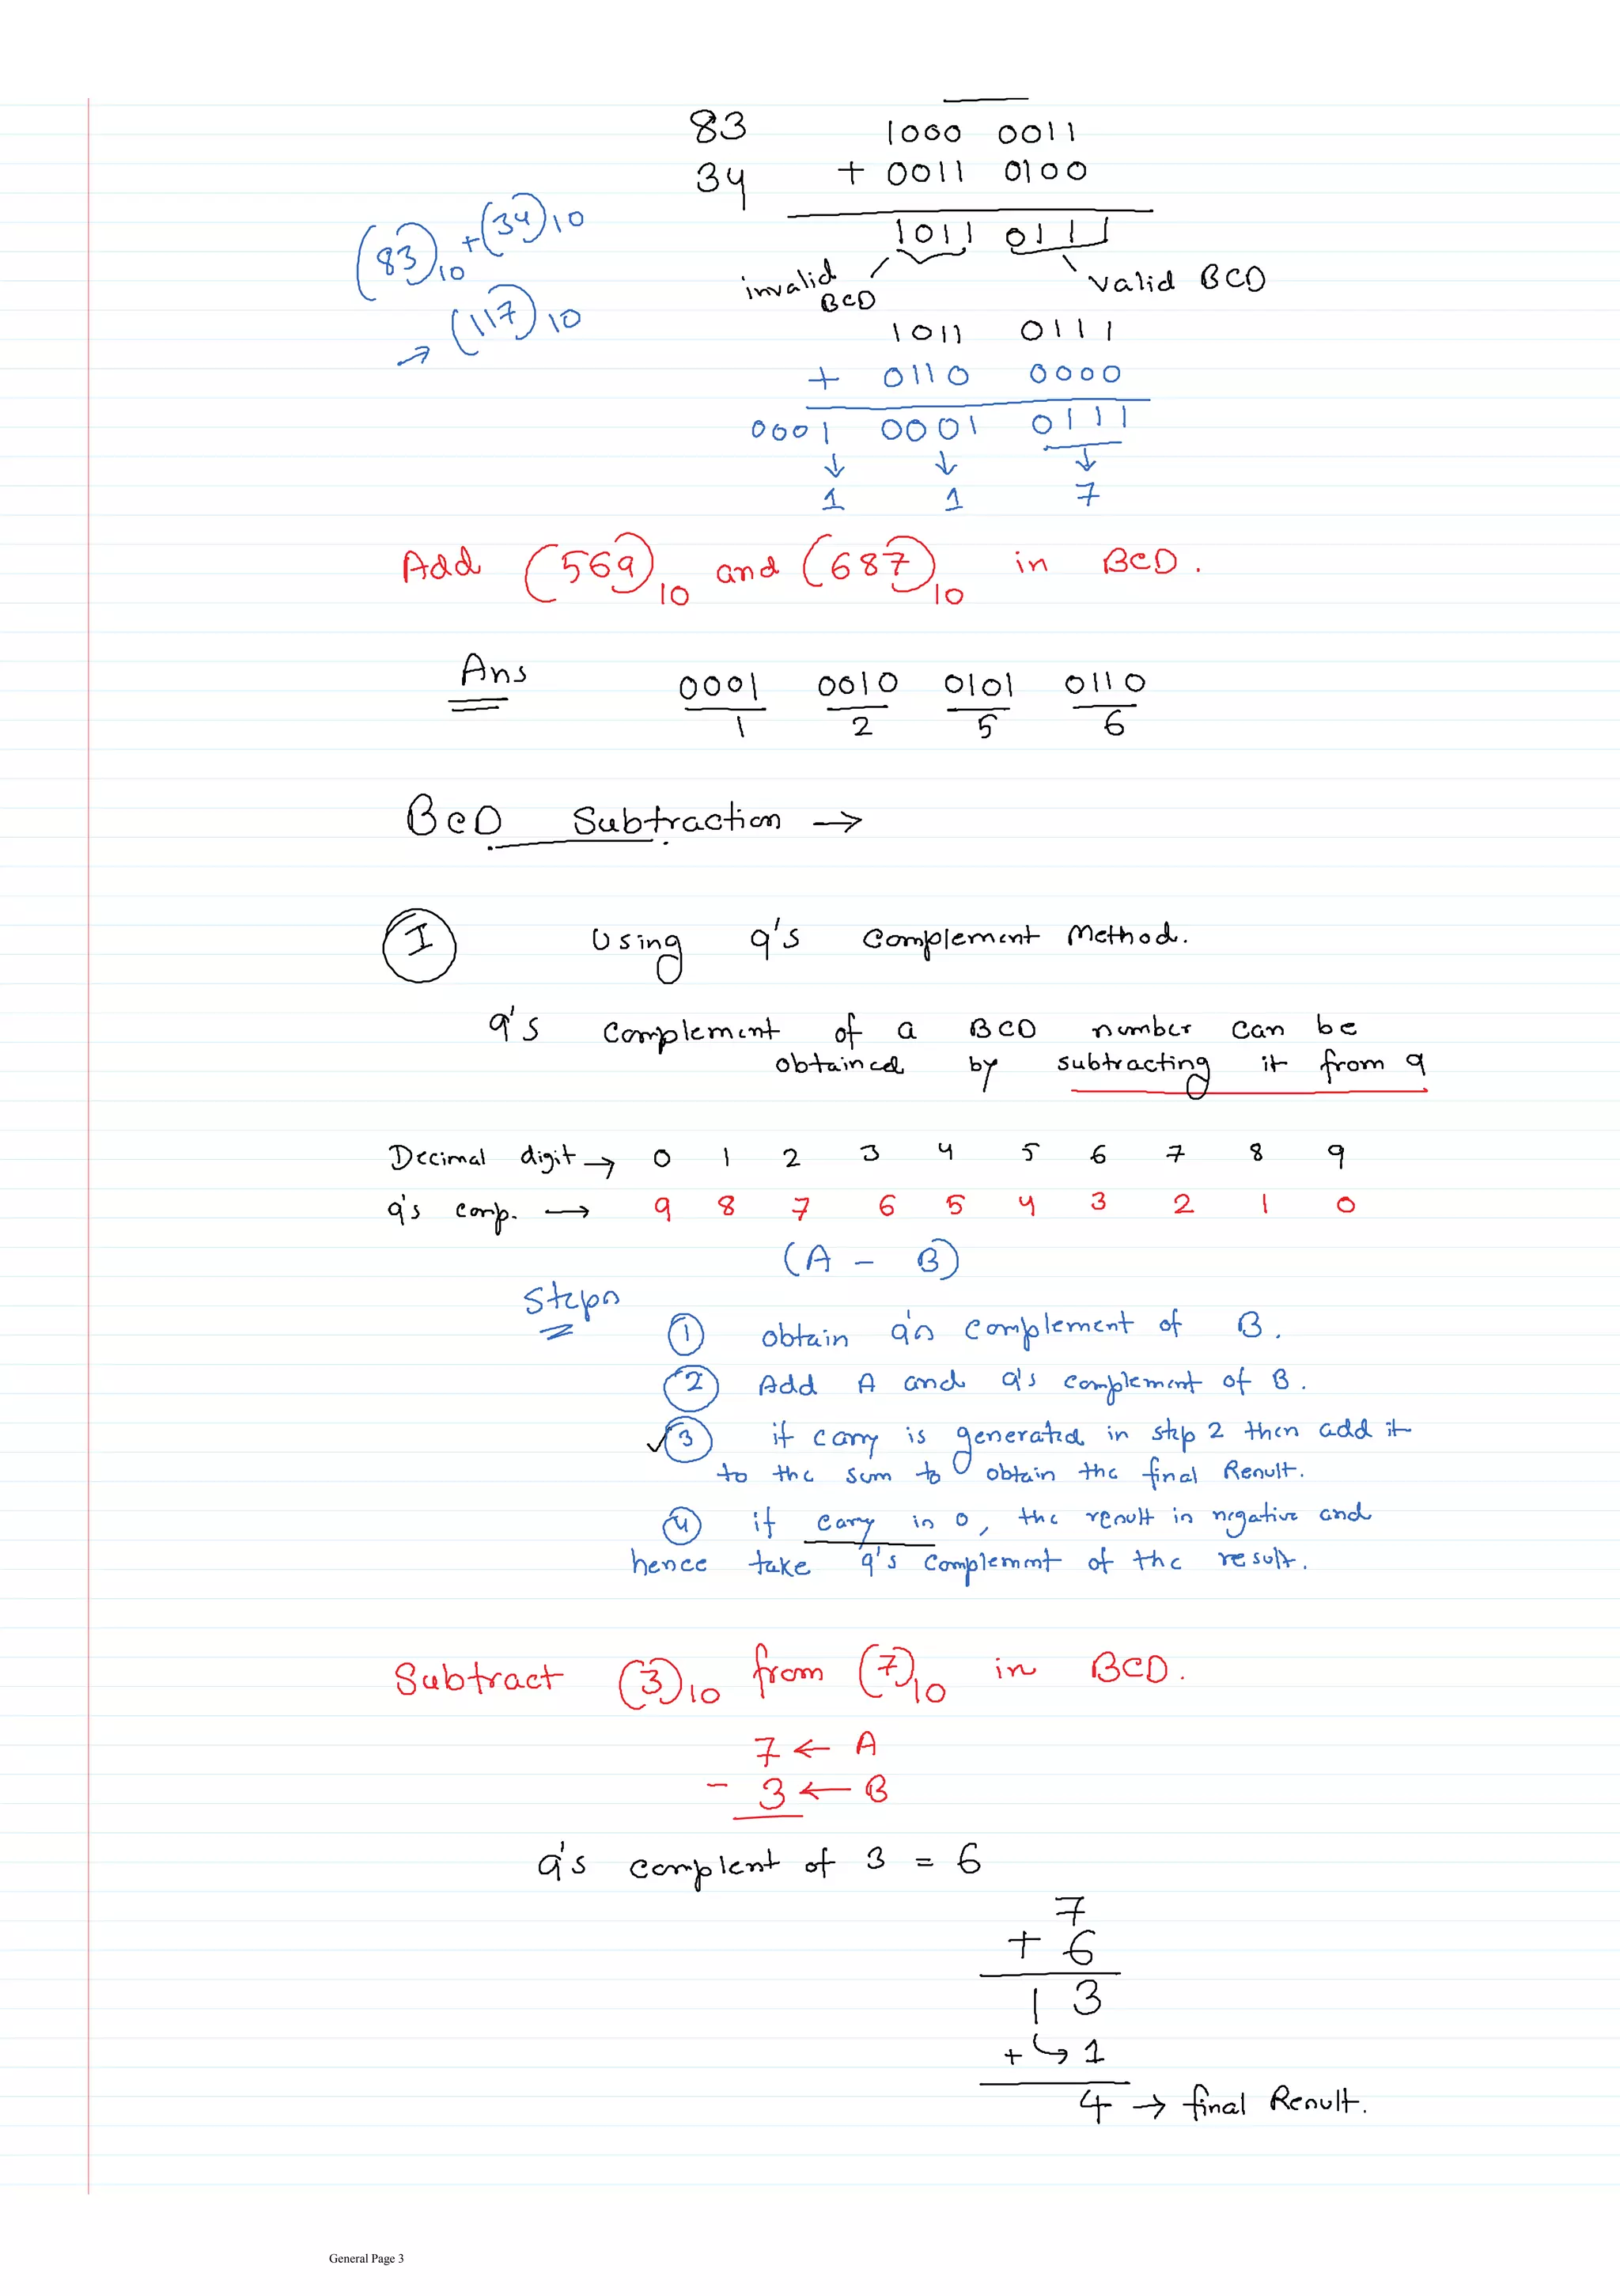 83 1000 0011
34 + 0011 0100
1011 0111
(83)10 + (34)10
→ (117)10
invalid BCD valid BCD
1011 0111
+ 0110 0000
0001 0001 0111
↓ ↓ ↓
1 1 7
Add (569)10 and (687)10 in BCD.
Ans 0001 0010 0101 0110
1 2 5 6
BCD Subtraction →
I Using 9's complement Method.
9's complement of a BCD number can be
obtained by subtracting it from 9
Decimal digit → 0 1 2 3 4 5 6 7 8 9
9's comp. → 9 8 7 6 5 4 3 2 1 0
(A - B)
Steps
1 obtain 9's complement of B.
2 Add A and 9's complement of B.
✓ 3 if carry is generated in step 2 then add it
to the sum to obtain the final Result.
4 if carry is 0, the result is negative and
hence take 9's complement of the result.
Subtract (3)10 from (7)10 in BCD.
7 ← A
- 3 ← B
9's complent of 3 = 6
7
+ 6
1 3
+ ↪ 1
4 → final Result.
General Page 3